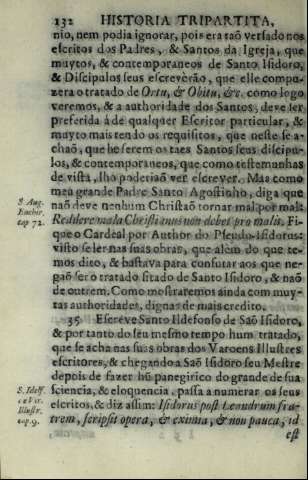 132 HISTORIA TRIPARTITA,
nio, nem podia ignorar, pois era taõ versado nos
escritos dos Padres, & Santos da Igreja, que
muytos, & contemporaneos de Santo Isidoro,
& Discipulos seus escrevèraõ, que elle compo-
zera o tratado de Ortu, & Obitu, &c. como logo
veremos, & a authoridade dos Santos, deve ser
preferida á de qualquer Escritor particular, &
muyto mais tendo os requisitos, que neste se a-
chaõ, que he serem os taes Santos seus discipu-
los, & contemporaneos, que como testemunhas
de vista, lho poderiaõ ver escrever. Mas como
meu grande Padre Santo Agostinho, diga que
naõ deve nenhum Christaõ tornar mal por mal:
Reddere mala Christianus non debet pro malis. Fi-
que o Cardeal por Author do Pseudo-Isidorus:
visto se ler nas suas obras, que além do que te-
mos dito, & bastava para confutar aos que ne-
gaõ ser o tratado sitado de Santo Isidoro, & naõ
de outrem. Como mostraremos ainda com muy-
tas authoridades, dignas de mais credito.
S. Aug.
Enchir.
cap 72.
35. Escreve Santo Ildefonso de Saõ Isidoro,
& por tanto do seu mesmo tempo hum tratado,
que se acha nas suas obras dos Varoens Illustres
escritores, & chegando a Saõ Isidoro seu Mestre
depois de fazer hũ panegirico do grande de sua
sciencia, & eloquencia, passa a numerar os seus
escritos, & diz assim: Isidorus post Leandrum fra-
trem, scripsit opera, & eximia, & non pauca, id
est
S. Idelf.
Illustr.
cap. 9.